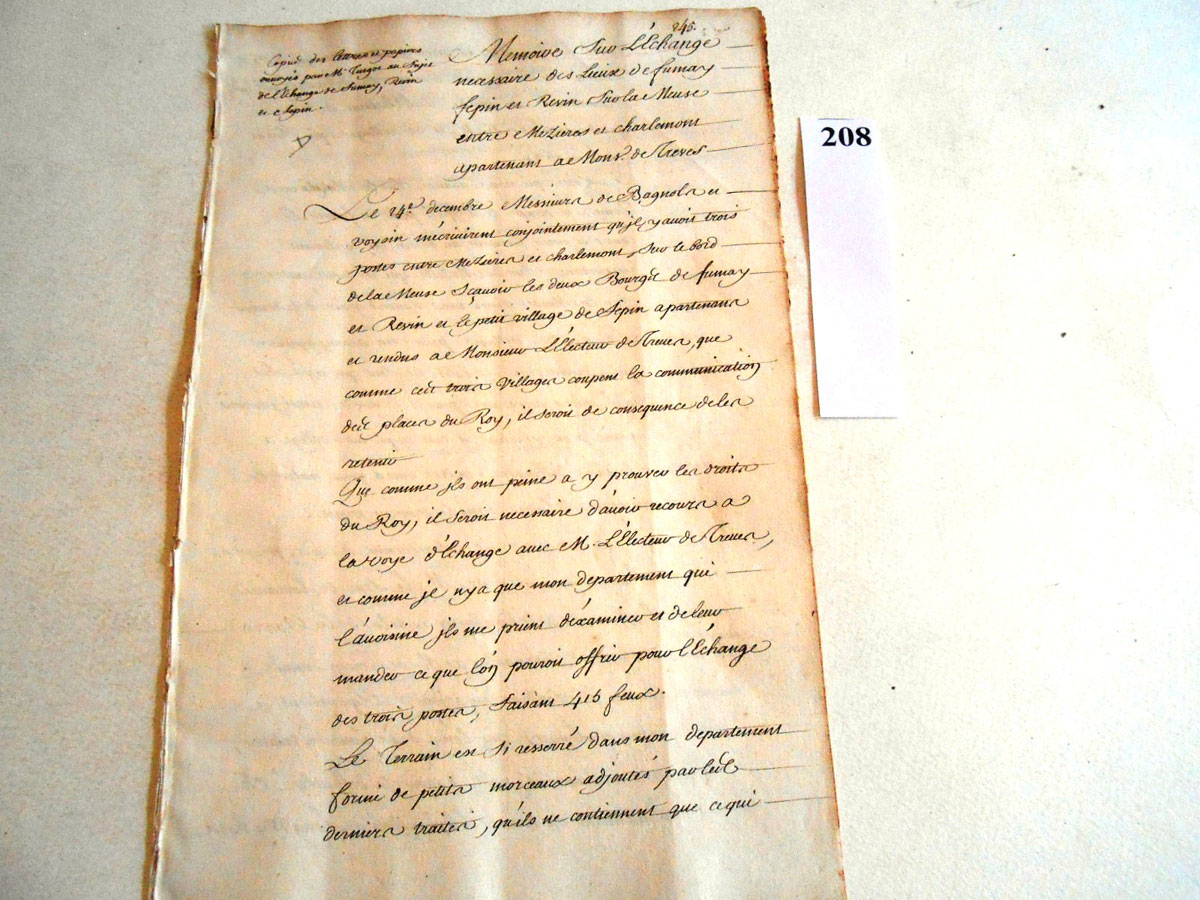 245.
Copie des lettres et papiers
envoyés par Mr. Turgot au Sujet
de l'Echange de Fumay, Revin
et Fepin.
Memoire Sur L'Échange
necessaire des Lieux de fumay
fepin et Revin Sur la Meuse
entre Mezieres et charlemont
apartenant a Monsr. de Treves
208
Le 24e. decembre Messieurs de Bagnols et
voysin mécrivirent conjointement qu'jl y avoit trois
postes entre Mezieres et charlemont, Sur le bord
de la Meuse Sçavoir les deux Bourgs de fumay
et Revin et le petit village de Fepin apartenans
et rendus a Monsieur L'Électeur de Treves, que
comme ces trois villages coupent la communication
des places du Roy, il seroit de consequence de les
retenir
Que comme jls ont peine a y prouver les droits
du Roy, il seroit necessaire d'avoir recours a
la voye d'Échange avec M. L'Électeur de Treves,
et comme je ny a que mon departement qui
l'avoisine jls me prient déxaminer et de leur
mander ce que l'on pouroit offrir pour l'Échange
des trois postes, faisant 415 feux.
Le Terrain est Si resserré dans mon departement
formé de petits morceaux adjoutés par les
derniers traités, qu'ils ne contiennent que ce qui